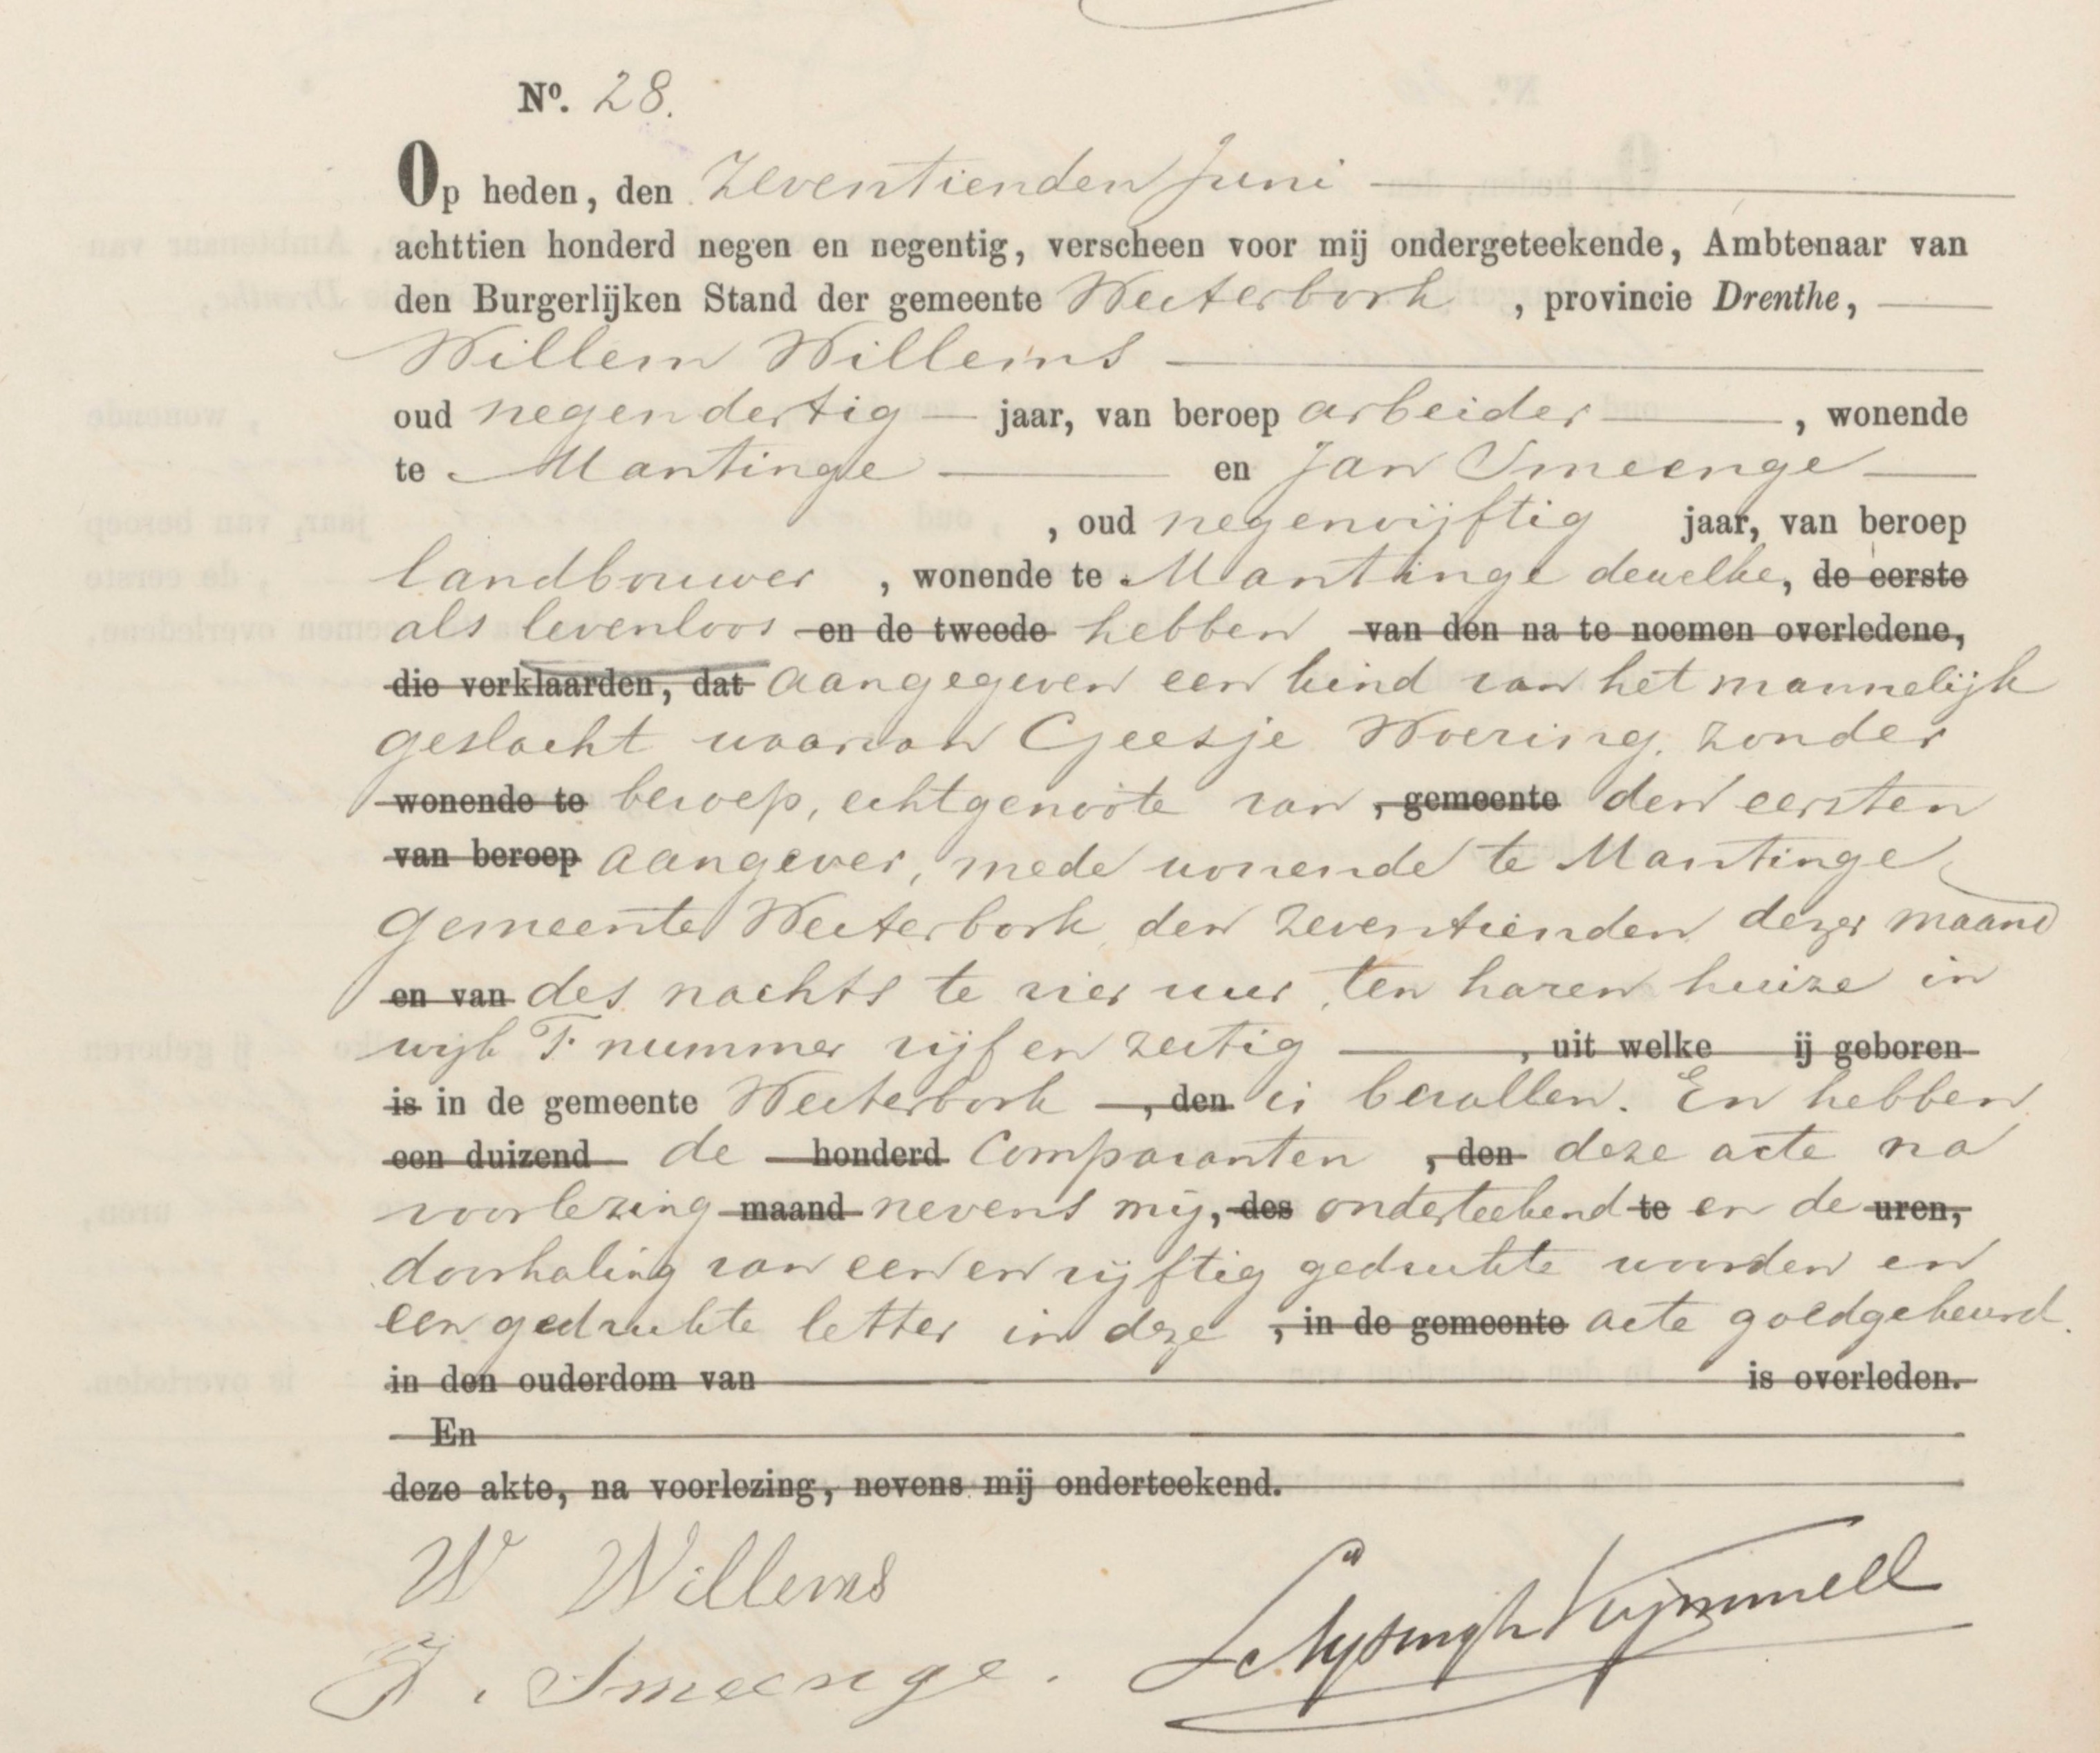 Nº. 28.
Op heden, den zeventienden Juni
achttien honderd negen en negentig, verscheen voor mij ondergeteekende, Ambtenaar van
den Burgerlijken Stand der gemeente Westerbork, provincie Drenthe,
Willem Willems
oud negendertig jaar, van beroep arbeider, wonende
te Mantinge en Jan Smeenge
, oud negenvijftig jaar, van beroep
landbouwer, wonende te Mantinge dewelke, de eerste
als levenloos en de tweede hebben van den na te noemen overledene,
die verklaarden, dat aangegeven een kind van het mannelijk
geslacht waarvan Geesje Woering, zonder
wonende te beroep, echtgenoote van , gemeente den eersten
van beroep aangever, mede wonende te Mantinge
gemeente Westerbork den zeventienden dezer maand
en van des nachts te vier uur, ten haren huize in
wijk F. nummer vijf en zestig , uit welke ij geboren
is in de gemeente Westerbork , den is bevallen. En hebben
een duizend de honderd Comparanten , den deze acte na
voorlezing maand nevens mij, des onderteekend te en de uren,
doorhaling van een en vijftig gedrukte woorden en
een gedrukte letter in deze , in de gemeente acte goedgekeurd.
in den ouderdom van is overleden.
En
deze akte, na voorlezing, nevens mij onderteekend.
W Willems
J. Smeenge. Kymmell